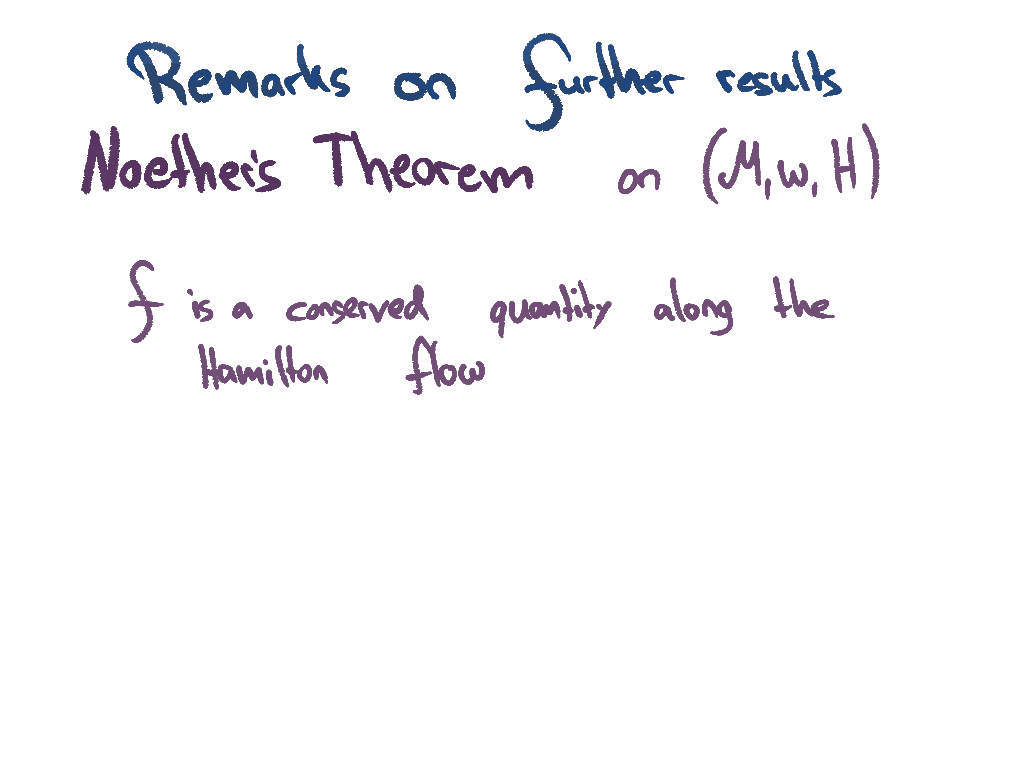 Remarks on further results
Noether's Theorem on (M, ω, H)
f is a conserved quantity along the
Hamilton flow